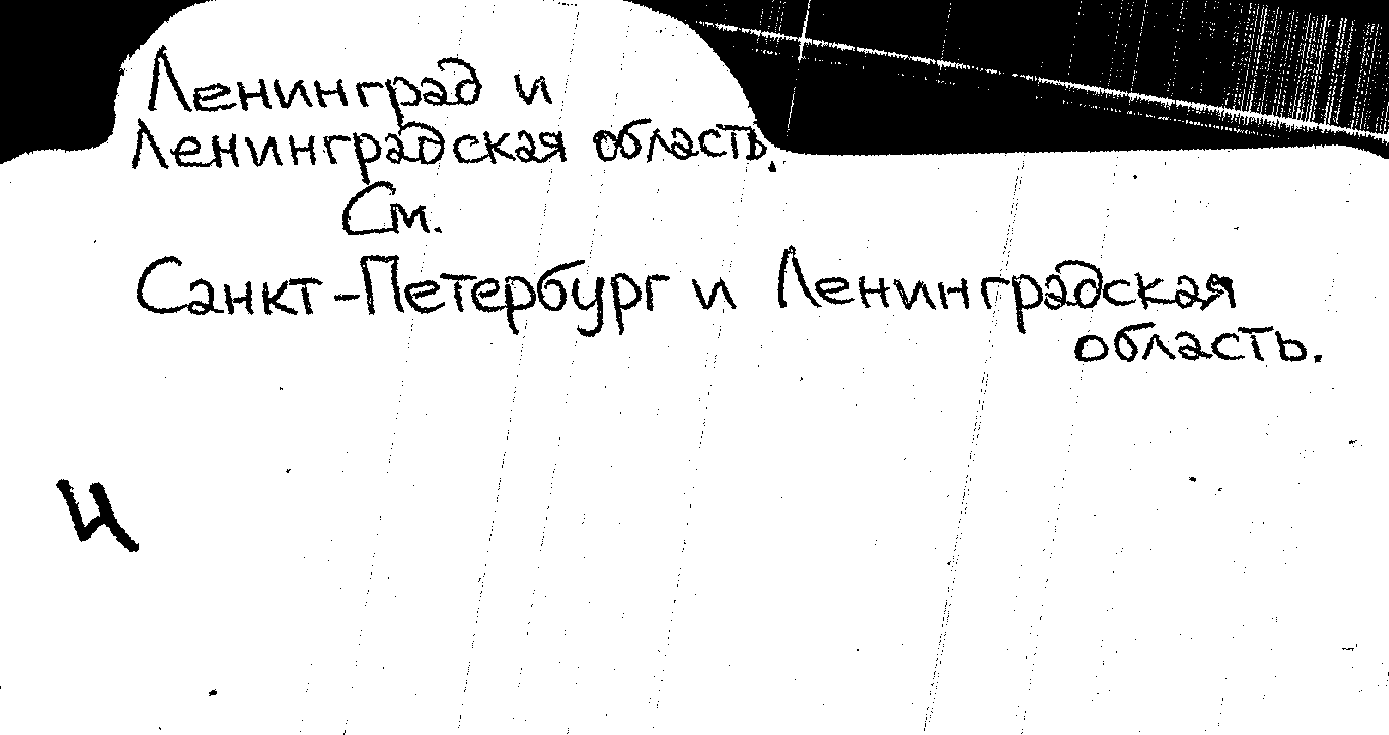 Ленинград и
Ленинградская область.
См.
Санкт-Петербург и Ленинградская
область.
и